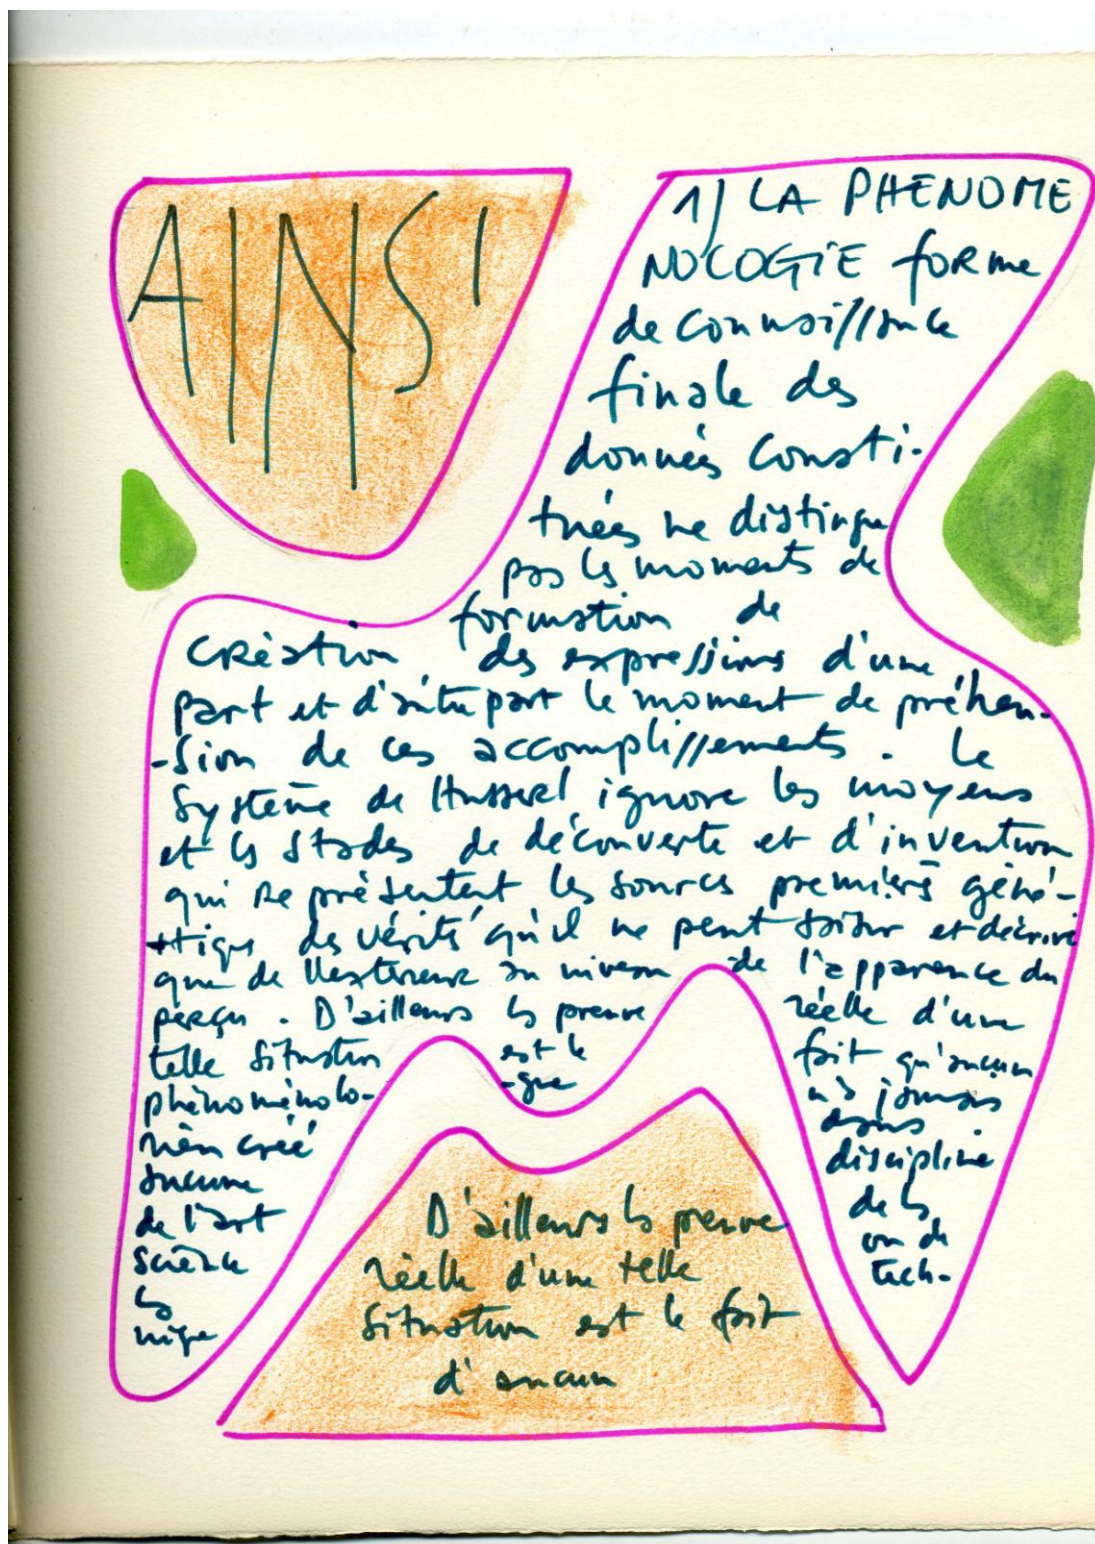 AINSI
1) LA PHENOME
NOLOGIE forme
de connaissance
finale des
donnés consti-
tuées ne distingue
pas les moments de
formation de
création des expressions d'une
part et d'autre part le moment de préhen-
-sion de ces accomplissements. Le
Système de Husserl ignore les moyens
et les stades de découverte et d'invention
qui représentent les sources premières géné-
-tiques des vérités qu'il ne peut saisir et décrire
que de l'extérieur au niveau de l'apparence du
perçu. D'ailleurs la preuve réelle d'une
telle situation est le fait qu'aucun
phénoménolo- -gue n'a jamais
rien créé dans
aucune discipline
de l'art de la
science ou de
la tech-
nique
D'ailleurs la preuve
réelle d'une telle
situation est le fait
d'aucun